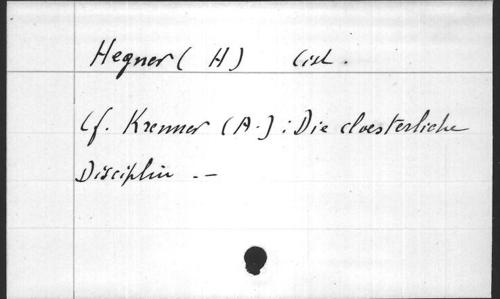 Hegner ( H ) Cist .
Cf. Krenner (A.) : Die cloesterliche
Disciplin . -